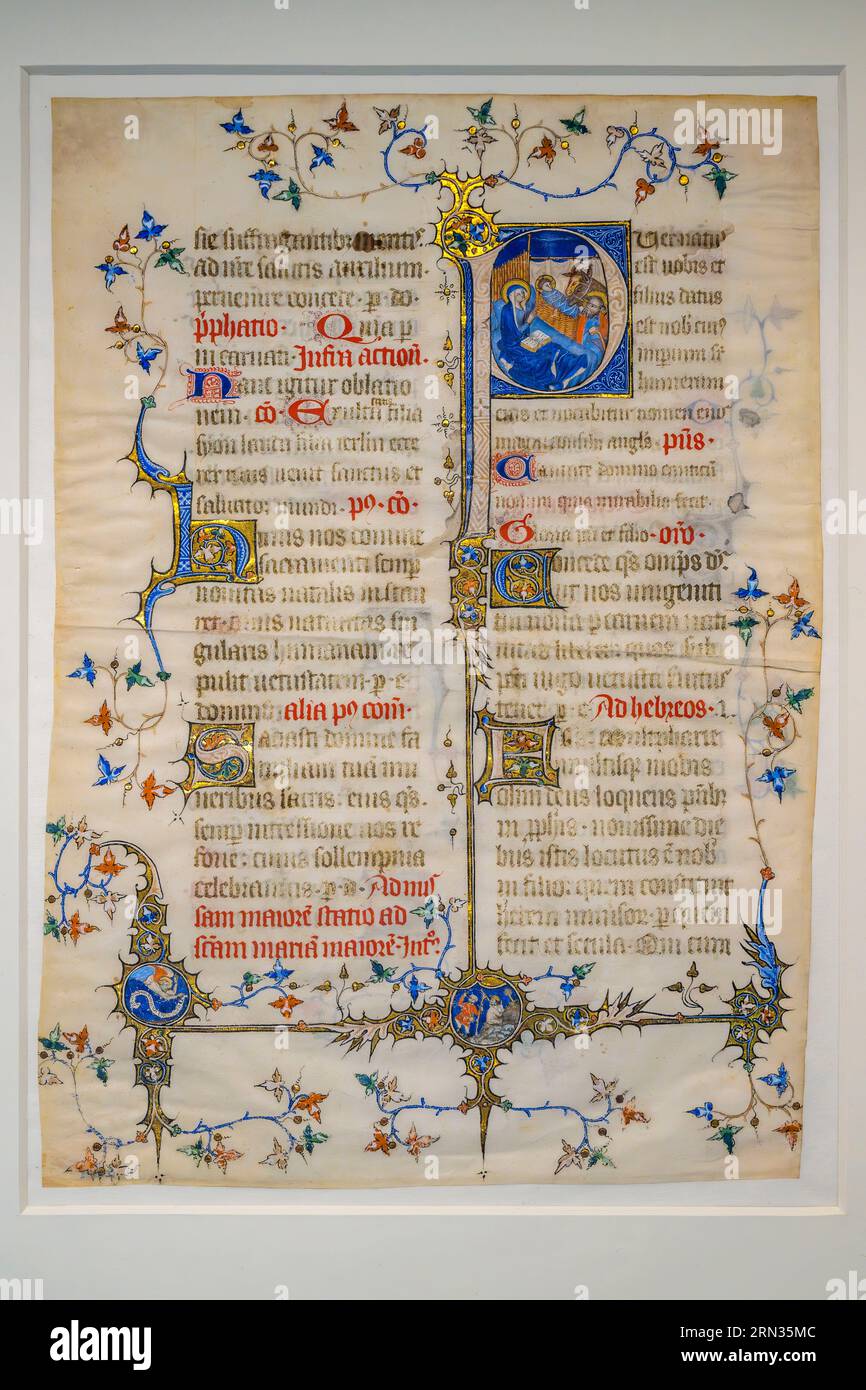 ad nr̄e salutis auxilium.
peruenire concede. p. do.
p̄phatio. Quia p
in carnati. Infra action̄.
Hanc igitur oblatio
nem. cō. Exulta filia
syon lauda filia ierlm ecce
rex tuus uenit sanctus et
saluator mundi. p⁹. cō.
Huius nos domine
sacramenti semp
nouitas natalis instau
ret. cuius natiuitas sin
gularis humanam re
pulit uetustatem. p. e.
alia p⁹ com̄.
Saciasti domine fa
miliam tuā mu
neribus sacris: eius qs̄.
semp intcessione nos re
foue: cuius sollempnia
celebramus. p. d. Ad mis
sam maiorē statio ad
scām mariā maiorē. Intr̄.
Puer natus
est nobis et
filius datus
est nob cui⁹
impium sr
humerum
eius et uocabitur nomen eius
magni consilii angls. ps̄.
Cantate domino canticū
nouum quia mirabilia fecit.
Gloria pri et filio. orō.
Concede qs̄ omps ds̄.
ut nos unigeniti
tui noua p carnem nati
uitas liberet quos sub
pcti iugo uetusta suitus
tenet. p. e. Ad hebreos. 1.
multipharie
multisq modis
olim deus loquens prib
in pphis. nouissime die
bus istis locutus ē nob
in filio: quem constituit
uniusor. p quem
fecit et secula. Qui cum
alamy
Image ID: 2RN35MC
www.alamy.com